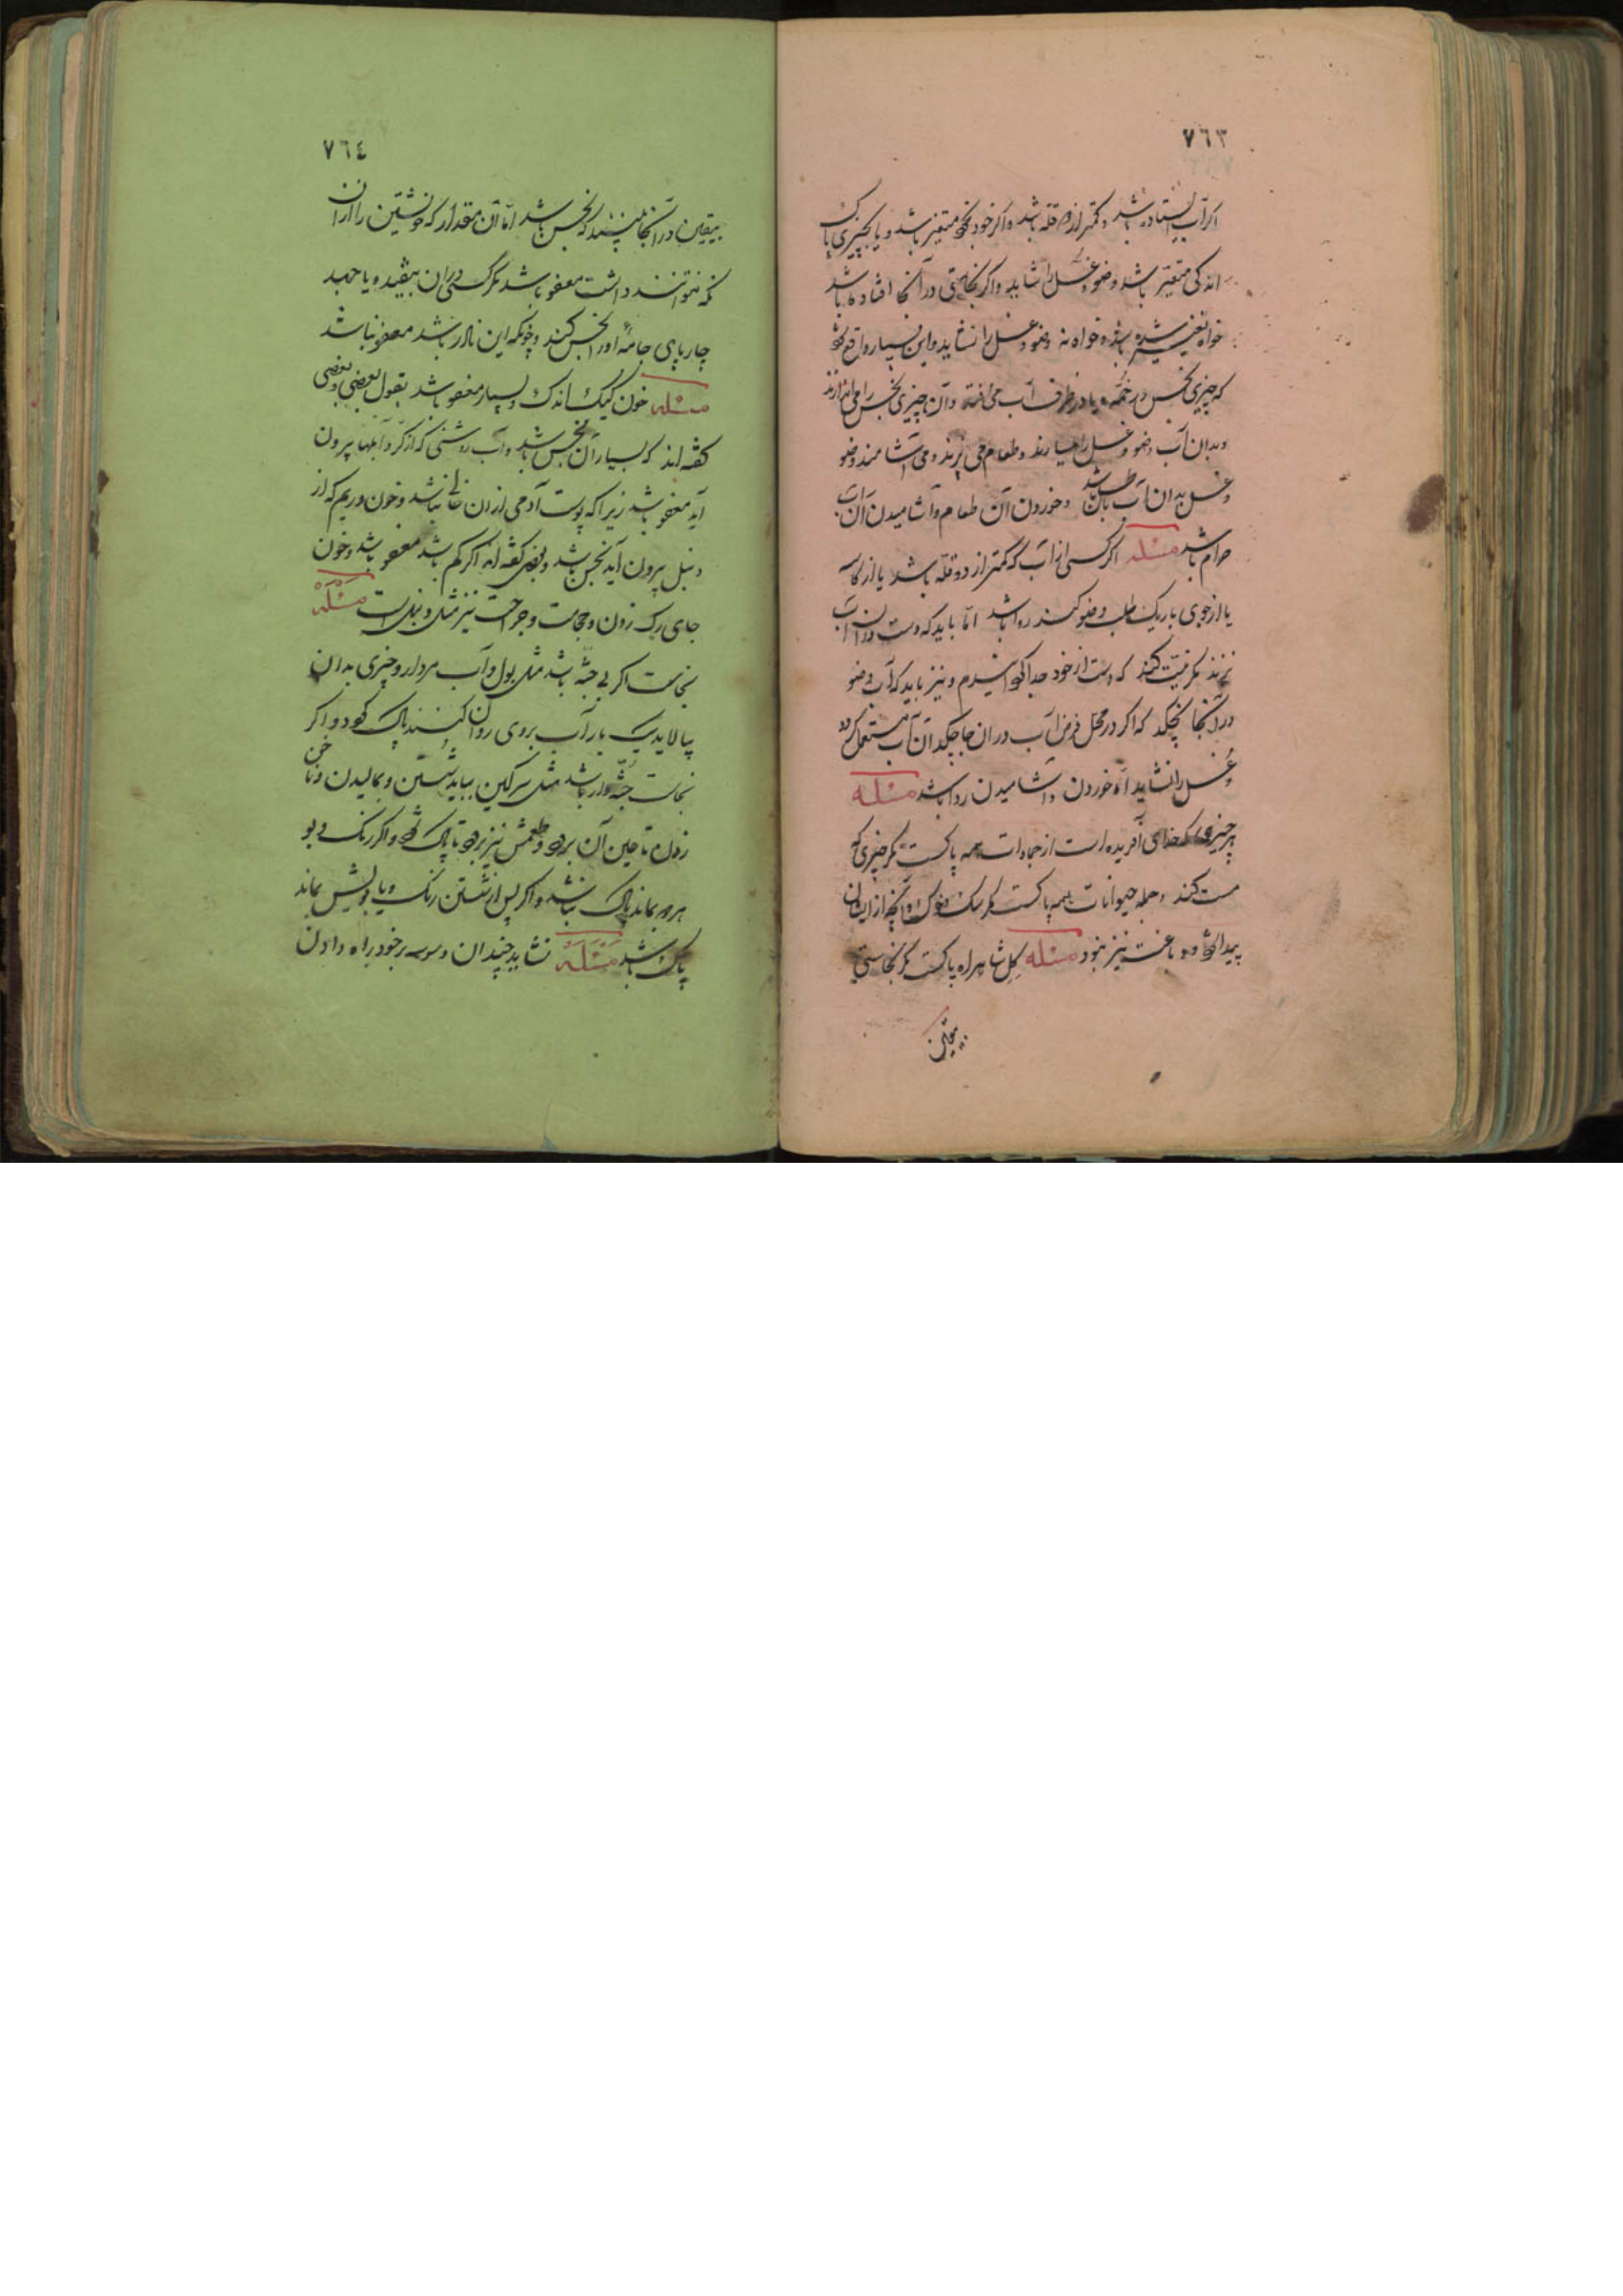 ٧٦٣
اکر آب ایستاده باشد و کمتر از دو قله باشد و اکر خود بخود متغیر باشد و یا بچیزی پاک
اندکی متغیر باشد وضو و غسل را شاید و اکر نجاستی در آنجا افتاده باشد
خواه تغییر شده باشد و خواه نه وضو و غسل را نشاید و این بسیار واقع شود
که چیزی نجس در خم و یا در ظرف آب می افتد و آن چیزی نجس را می اندازند
و بدان آب وضو و غسل را میارند و طعام می پزند و می آشامند وضو
و غسل بدان آب باطل باشد و خوردن آن طعام و آشامیدن آن آب
حرام باشد مسئله اکر کسی از آب که کمتر از دو قله باشد یا از کاسه
یا از جوی باریک طلب وضو کند روا باشد اما باید که دست در آن آب
نزند مکر نیت کند که دست از خود جدا میسازم و نیز باید که آب وضو
در آنجا نچکد که اکر در محل فرض آب در ان جا چکد آن آب مستعمل کردد
و غسل را نشاید اما خوردن و آشامیدن روا باشد مسئله
هر چیزی که خدای آفریده است از جمادات همه پاکست مکر چیزی که
مست کند و جمله حیوانات همه پاکست مکر سک و خوک و آنچه از ایشان
پیدا شود و باغت نیز نبود مسئله کل شاهراه پاکست مکر نجاستی
بیقین
٧٦٤
بیقین در آنجا بینند که نجس باشد اما آن مقدار که خویشتن را از ان
نکه نتوانند داشت معفو باشد مکر کسی در ان بیفتد و یا جهد
چارپای جامه او را نجس کند و چونکه این نادر باشد معفو نباشد
مسئله خون کیک اندک و بسیار معفو باشد بقول بعضی و بعضی
کفته اند که بسیار آن نجس باشد و آب روشنی که از کر و آبلها بیرون
آید معفو باشد زیرا که پوست آدمی از ان خالی نباشد و خون و ریم که از
دنبل بیرون آید نجس باشد و بعضی کفته اند اکر کم باشد معفو باشد و خون
جای رک زدن و حجامت و جراحت نیز مثل دنبل است مسئله
نجاست اکر بی جثه باشد مثل بول و آب مردار و چیزی بدان
بیالاید یک بار آب بروی روان کنند پاک شود و اکر
نجاست جثه دار باشد مثل سرکین بباید شستن و بمالیدن و ناخن
زدن تا عین آن برود و طعمش نیز برود تا پاک شود و اکر رنک و بو
هر دو بماند پاک نباشد و اکر پس از شستن رنک و یا بویش بماند
پاک باشد مسئله نشاید چندان وسوسه بر خود راه دادن